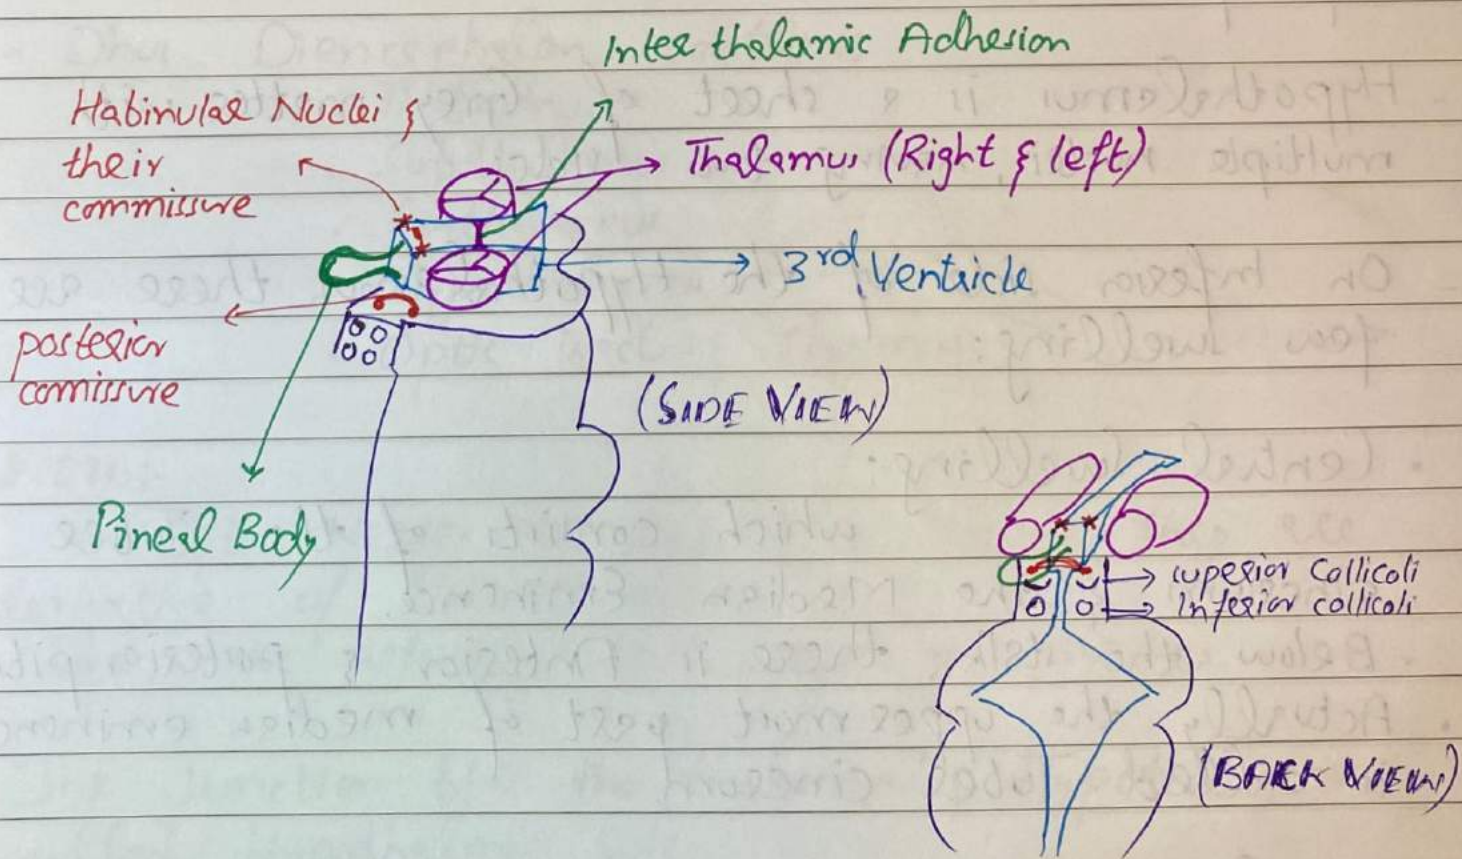 Inter thalamic Adhesion
Habinular Nuclei &
their
commissure
Thalamus (Right & left)
3rd Ventricle
posterior
comissure
(SIDE VIEW)
Pineal Body
superior Collicoli
Inferior collicoli
(BACK VIEW)